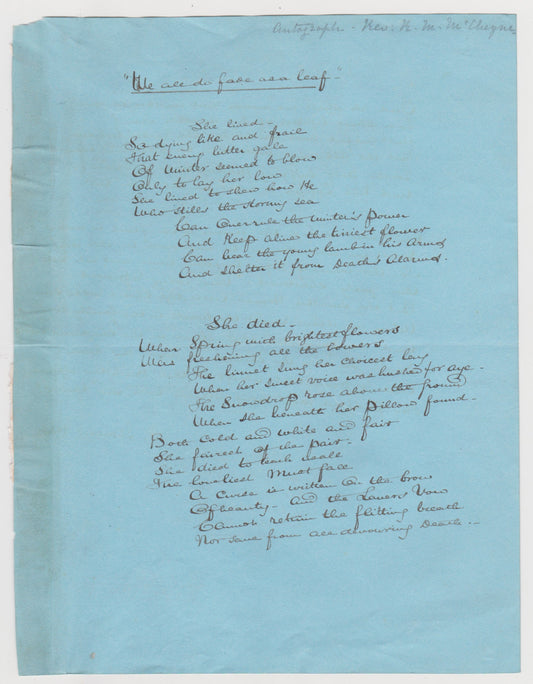 Autograph - Rev. R. M. McCheyne
"We all do fade as a leaf"
She lived -
So dying like and frail
That every bitter gale
Of Winter seemed to blow
Only to lay her low
She lived to shew how He
Who stills the stormy sea
Can Overrule the winter's power
And Keep alive the tiniest flower
Can bear the young lamb in his Arms
And Shelter it from Death's Alarms.
She died -
When Spring with brightest flowers
Was freshening all the bowers
The linnet sung her choicest lay
When her Sweet voice was hushed for aye -
The Snowdrop rose above the ground
When She beneath her pillow found -
Both Cold and white and fair
She fairest of the fair -
She died to teach us all
The loveliest Must
A Curse is written On the brow
Of beauty - And the Lover's Vow
Cannot retain the flitting breath
Nor save from all devouring Death. -